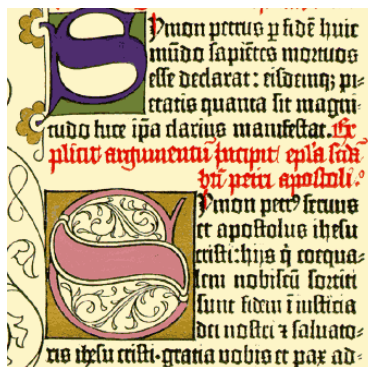 Symon petrus p fidē huic
mūdo sapiētes mortuos
esse declarat: eisdemq; pi-
etatis quanta sit magni-
tudo luce ip̄a clarius manifestat. Ex-
plicit argumentū Incipit ep̄la scd̄a
bt̄i petri apostoli.
Symon petr⁹ servus
et apostolus ihesu
cristi: hijs q̄ coequa-
lem nobiscū sortiti
sunt fidem ī iusticia
dei nostri ⁊ salvato-
ris ihesu cristi. gratia vobis et pax ad-